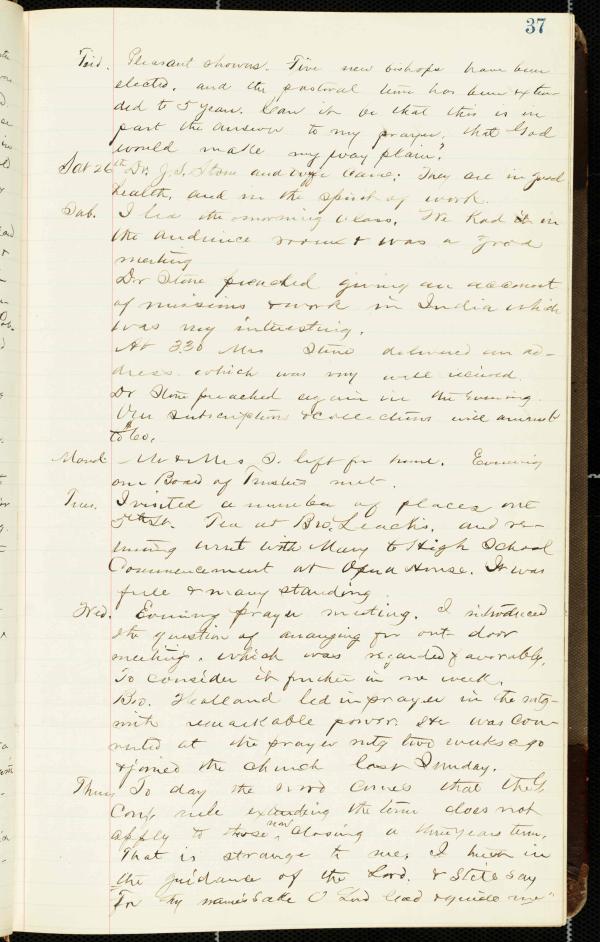 37
Frid. Pleasant showers. Five new bishops have been
elected, and the pastoral time has been exten-
ded to 5 years. Can it be that this is in
part the answer to my prayer, that God
would make my way plain?
Sat 26th Dr. J. S. Stone and wife came; They are in good
health, and in the spirit of work.
Sab. I led the morning class. We had it in
the audience room & was a good
meeting
Dr Stone preached giving an account
of missions & work in India which
was very interesting.
At 3.30 Mrs Stone delivered an ad-
dress which was very well received.
Dr Stone preached again in the Evening.
Our subscription & collections will amount
to $60.
Mond. Mr & Mrs S. left for home. Evening
our Board of Trustees met.
Tues. I visited a number of places one
5th St. Tea at Bro. Leach's, and
went with Mary to High School
Commencement at Opera House. It was
full & many standing
Wed. Evening prayer meeting. I introduced
the question of arranging for out-door
meeting, which was regarded favorably.
To consider it further in one week.
Bro. led in prayer in the mtg-
with remarkable power. He was con-
verted at the prayer mtg two weeks ago
& joined the church last Sunday.
Thurs To day the word comes that the
Conf. rule extending the term does not
apply to those now closing a three years term.
That is strange to me. I in
the guidance of the Lord. & still say
"For thy name's sake O Lord lead & guide me"